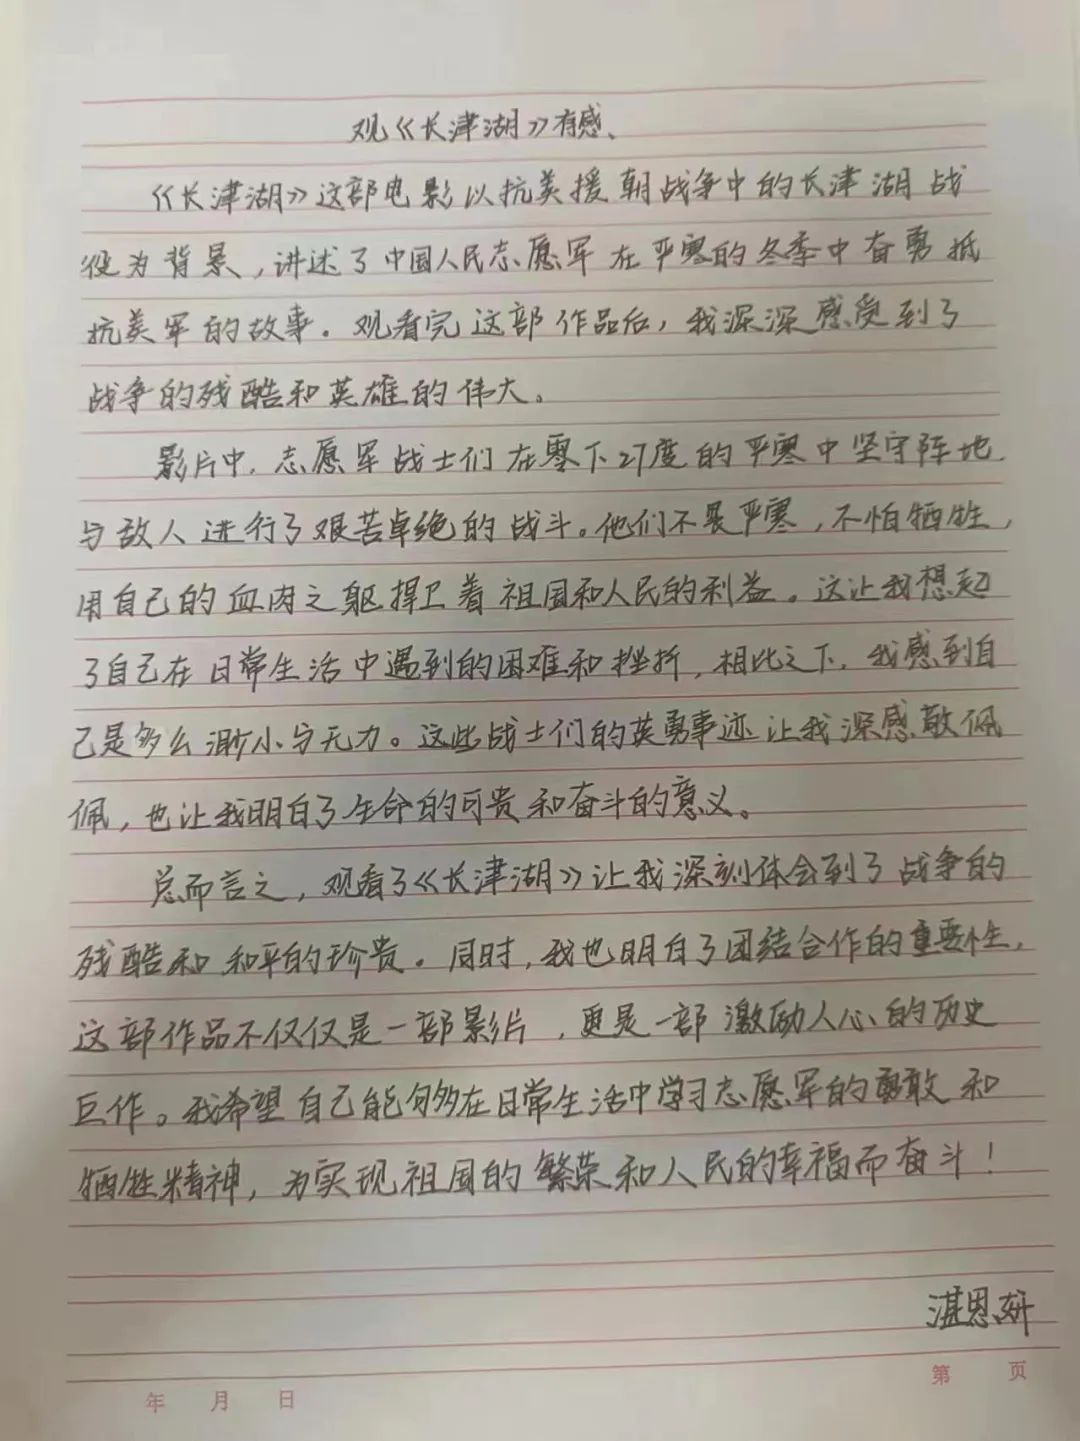 观《长津湖》有感、
《长津湖》这部电影以抗美援朝战争中的长津湖战
役为背景，讲述了中国人民志愿军在严寒的冬季中奋勇抵
抗美军的故事。观看完这部作品后，我深深感受到了
战争的残酷和英雄的伟大。
影片中，志愿军战士们在零下27度的严寒中坚守阵地，
与敌人进行了艰苦卓绝的战斗。他们不畏严寒，不怕牺牲，
用自己的血肉之躯捍卫着祖国和人民的利益。这让我想起
了自己在日常生活中遇到的困难和挫折，相比之下，我感到自
己是多么渺小与无力。这些战士们的英勇事迹让我深感敬佩
佩，也让我明白了生命的可贵和奋斗的意义。
总而言之，观看了《长津湖》让我深刻体会到了战争的
残酷和和平的珍贵。同时，我也明白了团结合作的重要性，
这部作品不仅仅是一部影片，更是一部激励人心的历史
巨作。我希望自己能够在日常生活中学习志愿军的勇敢和
牺牲精神，为实现祖国的繁荣和人民的幸福而奋斗！
湛恩妍
第 页
年 月 日